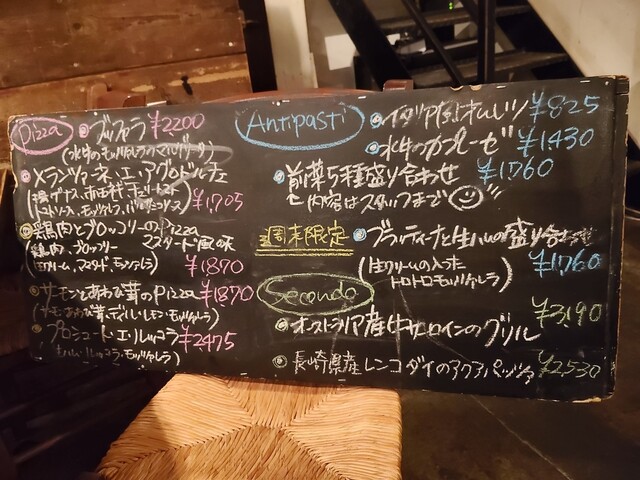 Pizza
ブッファラ ¥2200
(水牛のモッツァレラのマルゲリータ)
メランツァーネ・エ・アグロドルチェ
¥1705
鶏肉とブロッコリーのPizza
マスタード風味
(鶏肉、ブロッコリー
生クリーム、マスタード、モッツァレラ) ¥1870
サーモンとあわび茸のPizza ¥1870
(サーモン、あわび茸、ディル・レモン・モッツァレラ)
プロシュート・エ・ルッコラ ¥2475
(生ハム・ルッコラ・モッツァレラ)
Antipasti
イタリア風オムレツ ¥825
水牛のカプレーゼ ¥1430
前菜5種盛り合わせ ¥1760
内容はスタッフまで
週末限定
ブラッティーナと生ハムの盛り合わせ
(生クリームの入った
トロトロモッツァレラ) ¥1760
Secondo
オーストラリア産牛サーロインのグリル ¥3190
長崎県産レンコダイのアクアパッツァ ¥2530